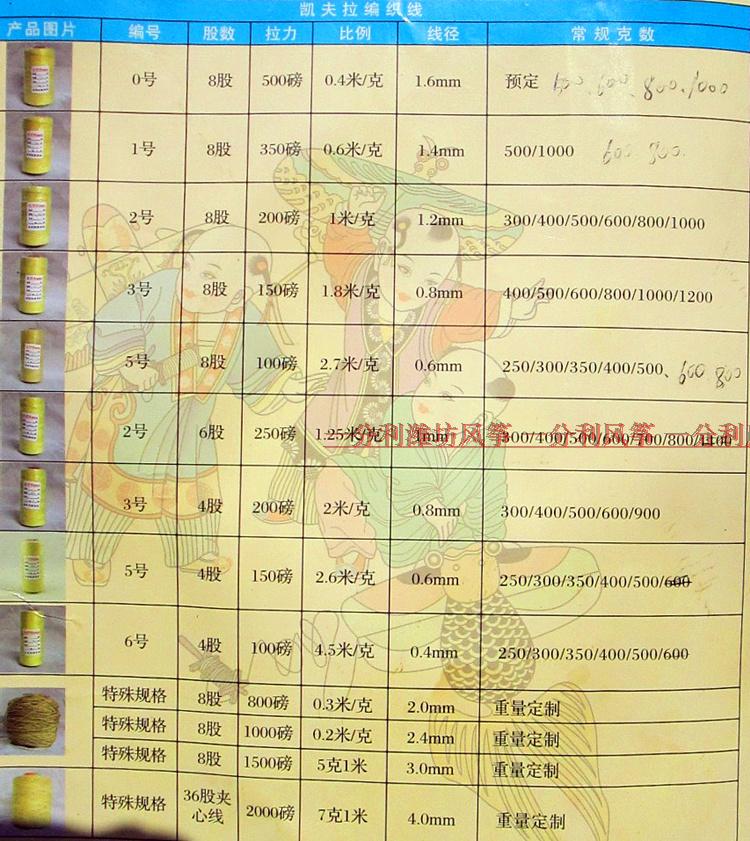 凯夫拉编织线
产品图片 编号 股数 拉力 比例 线径 常规克数
0号 8股 500磅 0.4米/克 1.6mm 预定 500、600、800、1000
1号 8股 350磅 0.6米/克 1.4mm 500/1000 600 800
2号 8股 200磅 1米/克 1.2mm 300/400/500/600/800/1000
3号 8股 150磅 1.8米/克 0.8mm 400/500/600/800/1000/1200
5号 8股 100磅 2.7米/克 0.6mm 250/300/350/400/500、600 800
2号 6股 250磅 1.25米/克 1mm 300/400/500/600/700/800/1100
分利潍坊风筝 — 分利风筝 — 分利
3号 4股 200磅 2米/克 0.8mm 300/400/500/600/900
5号 4股 150磅 2.6米/克 0.6mm 250/300/350/400/500/600
6号 4股 100磅 4.5米/克 0.4mm 250/300/350/400/500/600
特殊规格 8股 800磅 0.3米/克 2.0mm 重量定制
特殊规格 8股 1000磅 0.2米/克 2.4mm 重量定制
特殊规格 8股 1500磅 5克1米 3.0mm 重量定制
特殊规格 36股夹心线 2000磅 7克1米 4.0mm 重量定制